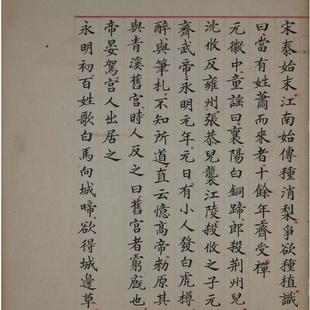 宋泰始末江南始傳種消梨爭欲種植識
曰當有姓蕭而來者十餘年齊受禪
元徽中童謠曰襄陽白銅蹄郎殺荊州兒
沈攸反雍州張恭兒襲江陵殺攸之子元
齊武帝永明元年元日有小人發白虎樽
醉與筆札不知所道直云憶高帝勅原其
與青溪舊宮時人反之曰舊宮者窮廐也
帝晏駕宮人出居之
永明初百姓歌白馬向城啼欲得城邊草